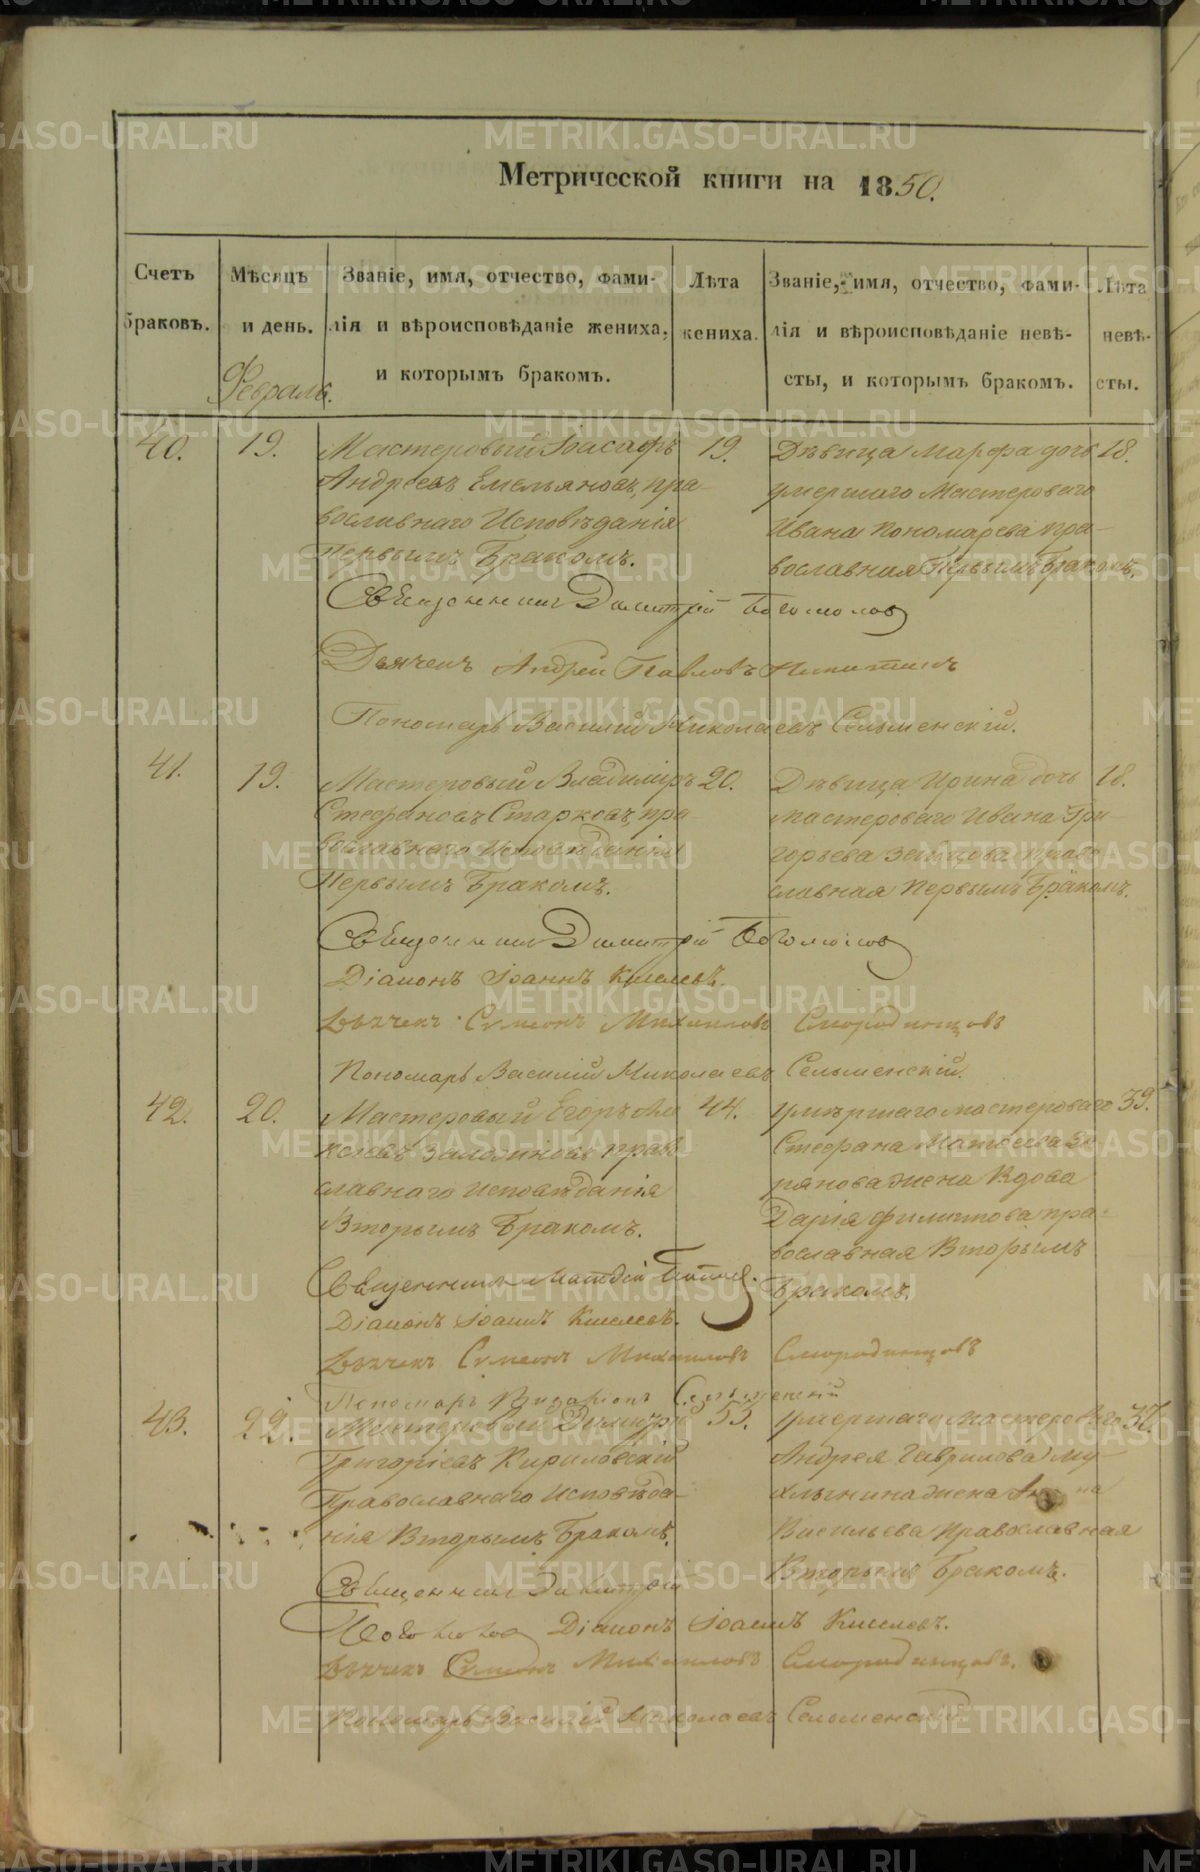 Метрической книги на 1850.
Счетъ браковъ.
Мѣсяцъ и день.
Званіе, имя, отчество, фами-
лія и вѣроисповѣданіе жениха,
и которымъ бракомъ.
Лѣта жениха.
Званіе, имя, отчество, фами-
лія и вѣроисповѣданіе невѣ-
сты, и которымъ бракомъ.
Лѣта невѣ-
сты.
Февраль.
40. 19.
Мастеровый Іоасафъ
Андреевъ Емельяновъ, пра-
вославнаго Исповѣданія
Первымъ Бракомъ.
19.
Дѣвица Марфа дочь
умершаго Мастероваго
Ивана Пономарева пра-
вославная Первымъ Бракомъ.
18.
Священникъ Димитрій Богомолов
Дьячекъ Андрей Павловъ Никитинъ
Пономарь Василій Николаевъ Сельменскій.
41. 19.
Мастеровый Владиміръ
Стефановъ Старковъ, пра-
вославнаго Исповѣданія
Первымъ Бракомъ.
20.
Дѣвица Ирина дочь
мастероваго Ивана Гри-
горьева Зайцова право
славная Первымъ Бракомъ.
18.
Священникъ Димитрій Богомолов
Діаконъ Іоаннъ Киселевъ.
Дьячекъ Симеонъ Михаиловъ Смородинцовъ
Пономарь Василій Николаевъ Сельменскій.
42. 20.
Мастеровый Егоръ
православнаго исповѣданія
Вторымъ Бракомъ.
44.
Умѣршаго мастероваго
Стефана Матвеева
жена Вдова
Дарія Филиппова, пра-
вославная Вторымъ
Бракомъ.
39.
Священникъ Матвій Поповъ.
Діаконъ Іоаннъ Киселевъ.
Дьячекъ Симеонъ Михаиловъ Смородинцовъ
Пономарь Сельменскій
43. 22.
Мастеровый Димитрій
Григоріевъ Кириловскій
Православнаго Исповѣда-
нія Вторымъ Бракомъ.
53.
Умершаго Мастероваго
Андрея Гаврилова Му-
хлынина жена
Васильева Православная
Вторымъ Бракомъ.
37.
Священникъ Димитрій
Богомолов Діаконъ Іоаннъ Киселевъ.
Дьячекъ Симеонъ Михаиловъ Смородинцовъ.
Пономарь Василій Николаевъ Сельменскій.
METRIKI.GASO-URAL.RU